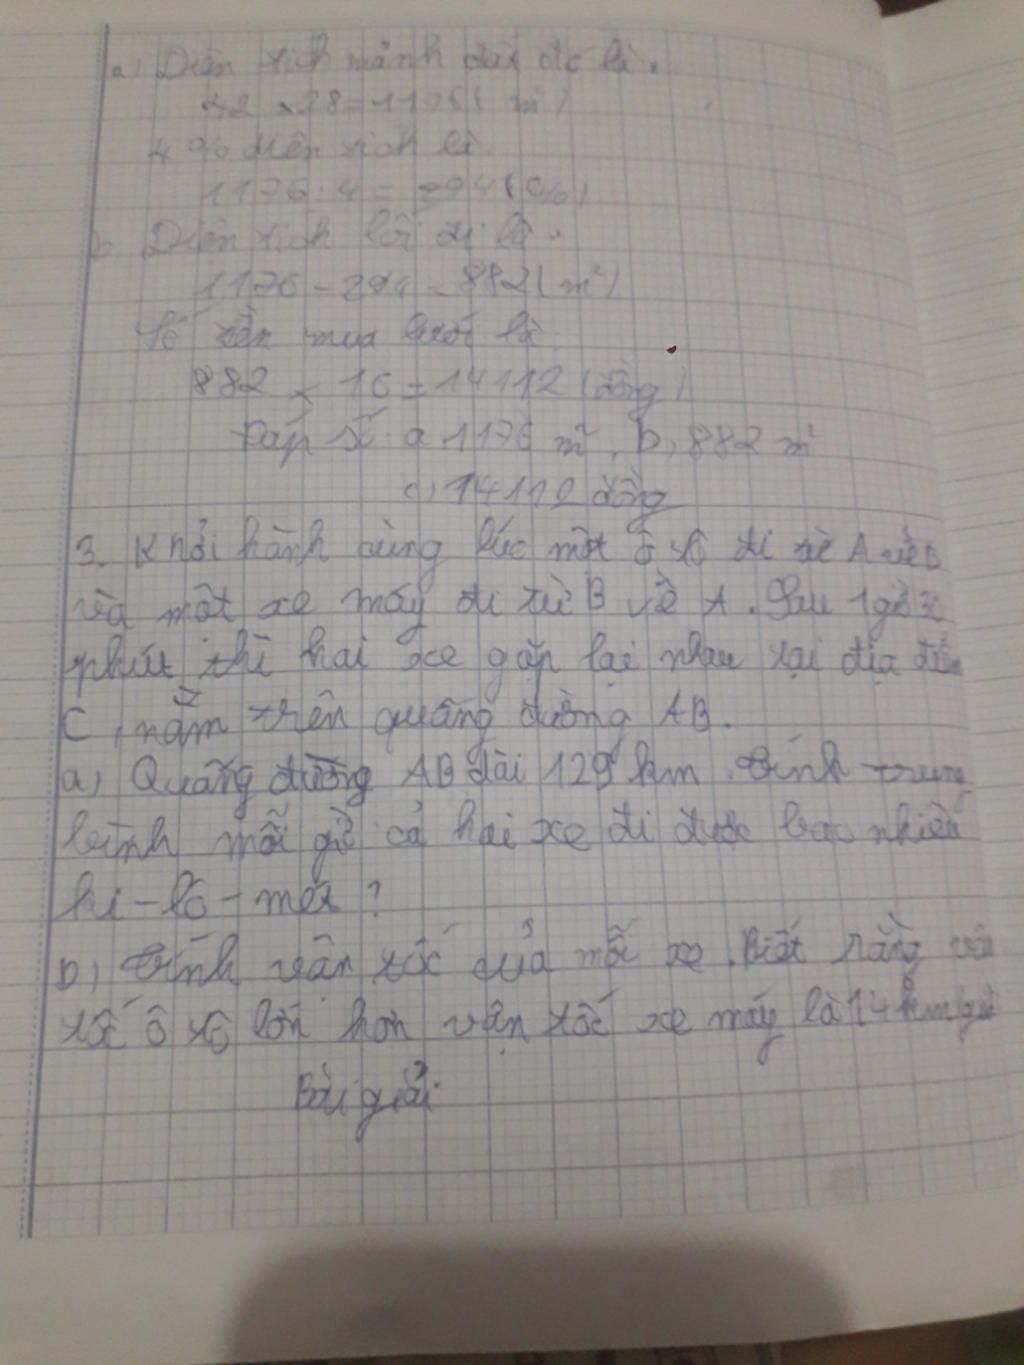 a) Diện tích mảnh đất đó là.
42 x 28 = 1176 ( m² )
4 % diện tích là
1176 : 4 = 294 ( % )
b Diện tích lối đi là.
1176 - 294 = 882 ( m² )
Số tiền mua lưới là
882 x 16 = 14112 (đồng)
Đáp số a 1176 m², b, 882 m²
c, 14112 đồng
3. Khởi hành cùng lúc một ô tô đi từ A về B
và một xe máy đi từ B về A. Sau 1 giờ 30
phút thì hai xe gặp lại nhau tại địa điểm
C, nằm trên quãng đường AB.
a, Quãng đường AB dài 129 km. tính trung
bình mỗi giờ cả hai xe đi được bao nhiêu
ki-lô-mét ?
b, tính vận tốc của mỗi xe. Biết rằng vận
tốc ô tô lớn hơn vận tốc xe máy là 14 km/giờ
Bài giải